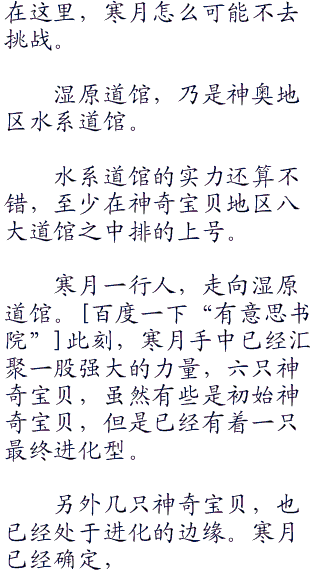 在这里，寒月怎么可能不去
挑战。
湿原道馆，乃是神奥地
区水系道馆。
水系道馆的实力还算不
错，至少在神奇宝贝地区八
大道馆之中排的上号。
寒月一行人，走向湿原
道馆。[百度一下“有意思书
院”]此刻，寒月手中已经汇
聚一股强大的力量，六只神
奇宝贝，虽然有些是初始神
奇宝贝，但是已经有着一只
最终进化型。
另外几只神奇宝贝，也
已经处于进化的边缘。寒月
已经确定，